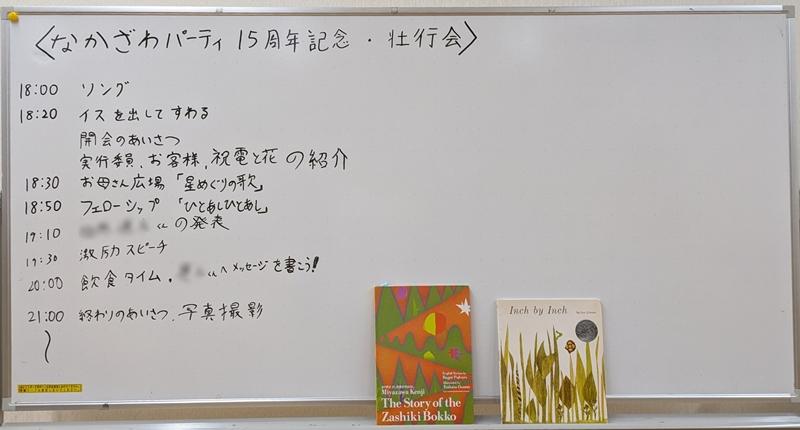 〈なかざわパーティ 15周年記念・壮行会〉
18:00 ソング
18:20 イスを出してすわる
開会のあいさつ
実行委員、お客様、祝電と花の紹介
18:30 お母さん広場「星めぐりの歌」
18:50 フェローシップ「ひとあしひとあし」
19:10 くんの発表
19:30 激励スピーチ
20:00 飲食タイム、くんへメッセージを書こう!
21:00 終わりのあいさつ、写真撮影
Miyazawa Kenji
The Story of the
Zashiki Bokko
Inch by Inch